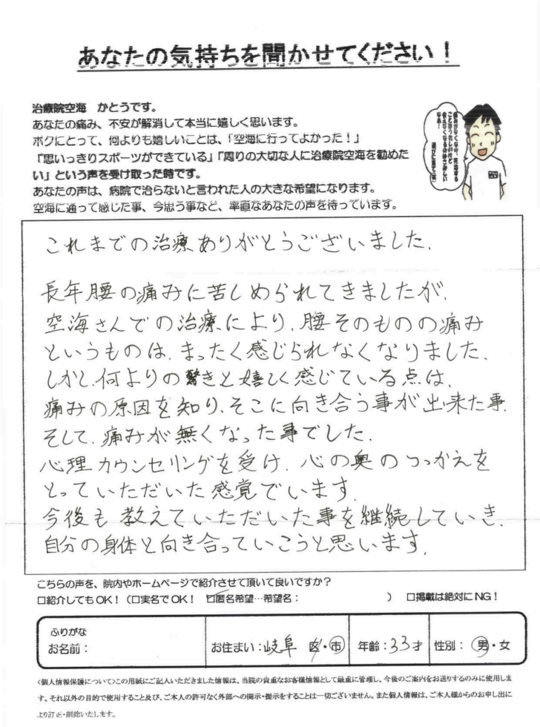 あなたの気持ちを聞かせてください!
治療院空海　かとうです。
あなたの痛み、不安が解消して本当に嬉しく思います。
ボクにとって、何よりも嬉しいことは、「空海に行ってよかった!」
「思いっきりスポーツができている」「周りの大切な人に治療院空海を勧めた
い」という声を受け取った時です。
あなたの声は、病院で治らないと言われた人の大きな希望になります。
空海に通って感じた事、今思う事など、率直なあなたの声を待っています。
これまでの治療ありがとうございました.
長年腰の痛みに苦しめられてきましたが.
空海さんでの治療により.腰そのものの痛み
というものは.まったく感じられなくなりました.
しかし.何よりの驚きと嬉しく感じている点は.
痛みの原因を知り.そこに向き合う事が出来た事.
そして.痛みが無くなった事でした.
心理カウンセリングを受け.心の奥のつっかえを
とっていただいた感覚でいます.
今後も教えていただいた事を継続していき.
自分の身体と向き合っていこうと思います.
こちらの声を、院内やホームページで紹介させて頂いて良いですか?
□紹介してもOK!（□実名でOK!　☑匿名希望…希望名：　　　）　□掲載は絶対にNG!
ふりがな
お名前：
お住まい：岐阜　区・市
年齢：33才
性別：男・女
（個人情報保護について）この用紙にご記入いただきました情報は、当院の貴重なお客様情報として厳重に管理し、今後のご案内をお送りするのみに使用しま
す。それ以外の目的で使用すること及び、ご本人の許可なく外部への開示・提示をすることは一切ございません。また個人情報は、ご本人様からのお申し出に
より訂正・削除いたします。